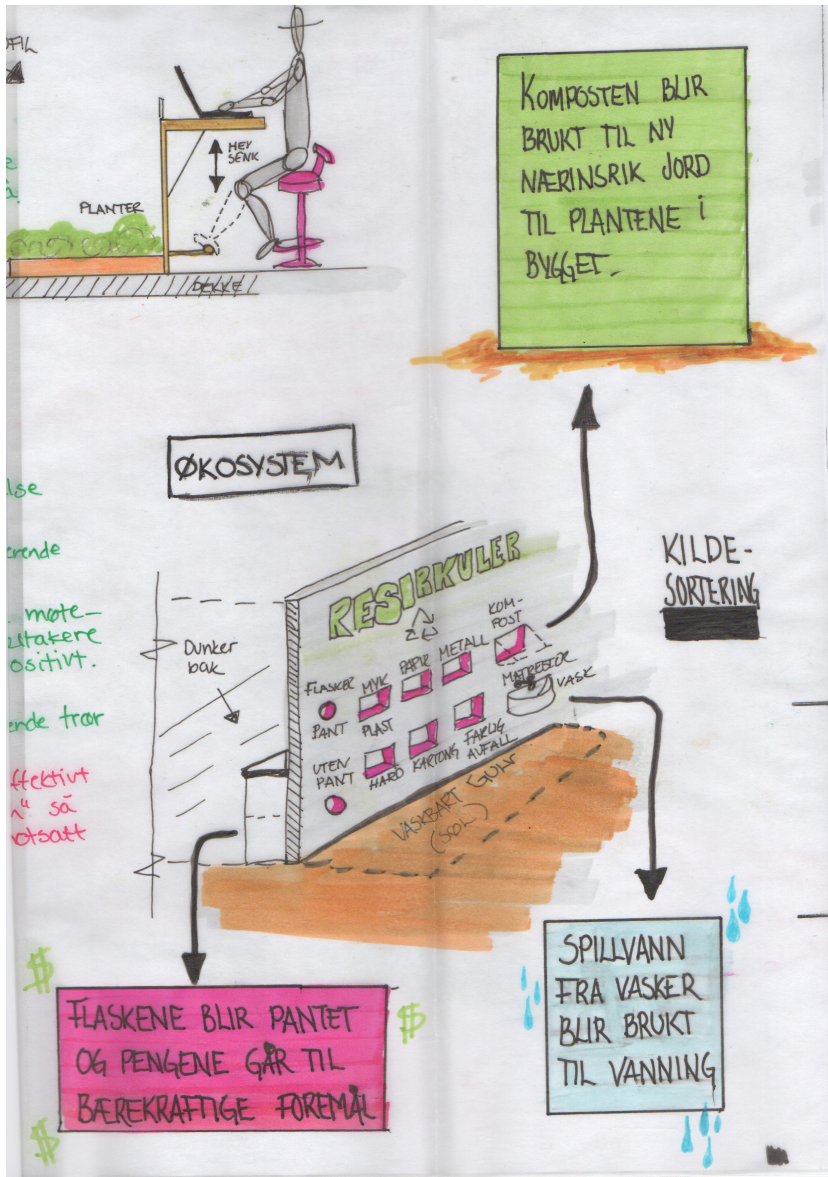 OFIL
HEV
SENK
PLANTER
DEKKE
KOMPOSTEN BLIR
BRUKT TIL NY
NÆRINSRIK JORD
TIL PLANTENE i
BYGGET.
ØKOSYSTEM
lse
erende
møte-
ltakere
ositivt.
ende trær
ffektivt
så
otsatt
KILDE-
SORTERING
RESIRKULER
Dunker
bak
FLASKER
PANT
MYK
PLAST
PAPIR
METALL
KOM-
POST
MATRESTER
VASK
UTEN
PANT
HARD
KARTONG
FARLIG
AVFALL
VASKBART GULV
(SKLI)
FLASKENE BLIR PANTET
OG PENGENE GÅR TIL
BÆREKRAFTIGE FOREMÅL
$
$
$
SPILLVANN
FRA VASKER
BLIR BRUKT
TIL VANNING